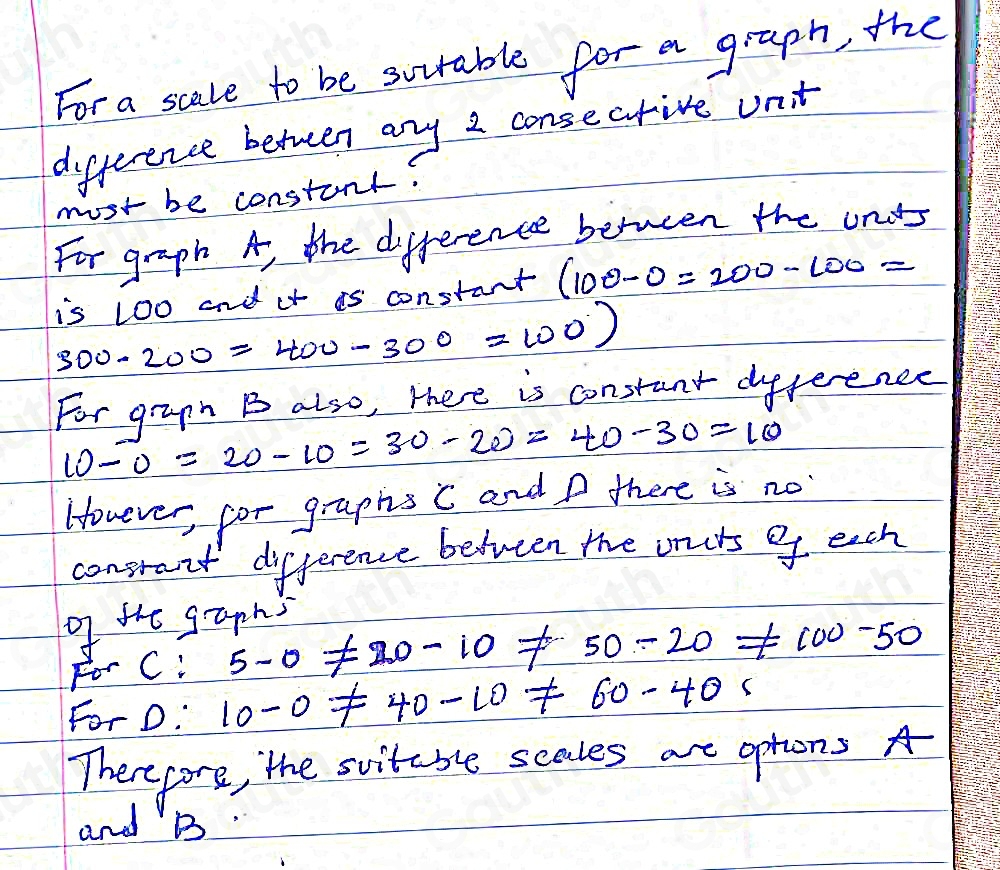 For a scale to be suitable for a graph, the
difference between any 2 consecutive unit
must be constant.
For graph A, the difference between the units
is 100 and it is constant (100-0 = 200-100 =
300-200 = 400-300 = 100)
For graph B also, there is constant difference
10-0 = 20-10 = 30-20 = 40-30 = 10
However, for graphs C and D there is no
constant difference between the units of each
of the graphs
For C: 5-0 ≠ 20-10 ≠ 50-20 ≠ 100-50
For D: 10-0 ≠ 40-10 ≠ 60-40
Therefore, the suitable scales are options A
and B.